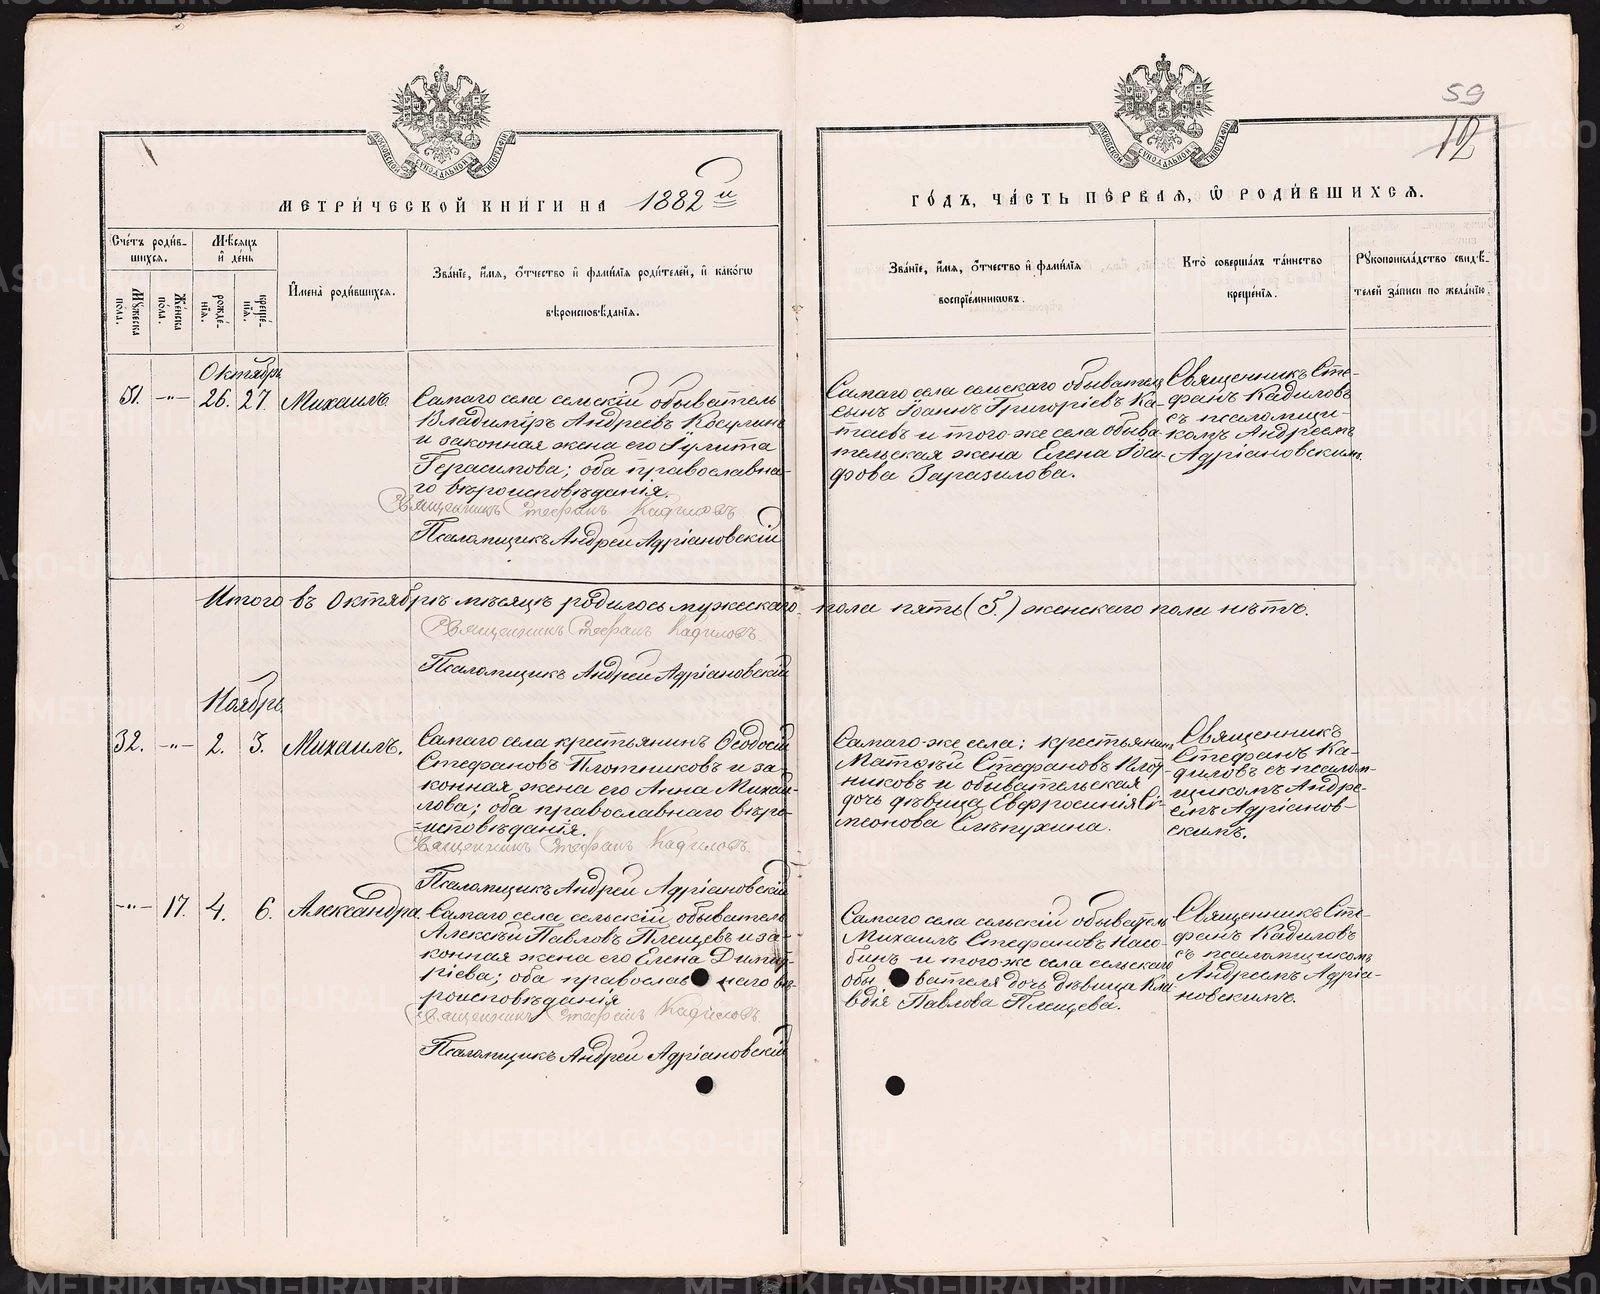 59
12
МЕТРИ́ЧЕСКОЙ КНИ́ГИ НА 1882 й
ГО́ДЪ, ЧА́СТЬ ПЕ́РВАЯ, Ѡ҆ РОДИ́ВШИХСЯ.
Сче́тъ роди́в-
шихся.
Мѣ́сяцъ
и҆ де́нь
Мꙋ́жеска
пола.
Же́нска
пола.
рожде́-
нїя.
креще́-
нїя.
И҆мена̀ роди́вшихся.
Зва́нїе, и҆́мя, ѻ҆́тчество и҆ фами́лїя роди́телей, и҆ како́гѡ
вѣроисповѣ́данїя.
Зва́нїе, и҆́мя, ѻ҆́тчество и҆ фами́лїя
воспрїе́мниковъ.
Кто̀ соверша́лъ та́инство
креще́нїя.
Рꙋкоприкла́дство свидѣ́-
телей за́писи по жела́нїю.
Октябрь
31. -"- 26. 27. Михаилъ.
Самаго села сельскій обыватель
Владимїръ Андреевъ Косулинъ
и законная жена его Іулита
Герасимова; оба православна-
го вѣроисповѣданія.
Священникъ Стефанъ Кадиловъ
Псаломщикъ Андрей Адріановскій
Самаго села сельскаго обывателя
сынъ Іоаннъ Григоріевъ Ка-
таевъ и того-же села обыва-
тельская жена Елена Іоси-
фова Заразилова.
Священникъ Сте-
фанъ Кадиловъ
съ псаломщи-
комъ Андреемъ
Адріановскимъ.
Итого въ Октябрѣ мѣсяцѣ родилось мужескаго пола пять (5.) женскаго пола нѣтъ.
Священникъ Стефанъ Кадиловъ
Псаломщикъ Андрей Адріановскій
Ноябрь
32. -"- 2. 3. Михаилъ.
Самаго села крестьянинъ Ѳеодосій
Стефановъ Плотниковъ и за-
конная жена его Анна Михаи-
лова; оба православнаго вѣро-
исповѣданія.
Священникъ Стефанъ Кадиловъ
Псаломщикъ Андрей Адріановскій
Самаго-же села: крестьянинъ
Матѳій Стефановъ Плот-
никовъ и обывательская
дочь дѣвица Евфросинія Си-
меонова Слѣпухина.
Священникъ
Стефанъ Ка-
диловъ съ псалом-
щикомъ Андре-
емъ Адріанов-
скимъ.
-"- 17. 4. 6. Александра
Самаго села сельскій обыватель
Алексѣй Павловъ Плещевъ и за-
конная жена его Елена Димит-
ріева; оба православнаго вѣ-
роисповѣданія
Священникъ Стефанъ Кадиловъ
Псаломщикъ Андрей Адріановскій
Самаго села сельскій обыватель
Михаилъ Стефановъ Насо-
бинъ и того-же села сельскаго
обывателя дочь дѣвица Кла-
вдія Павлова Плещева.
Священникъ Сте-
фанъ Кадиловъ
съ псаломщикомъ
Андреемъ Адріа-
новскимъ.